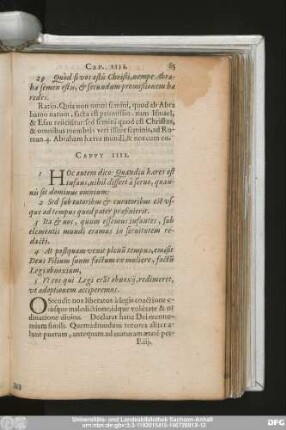 CAP. IIII. 83
29 Quòd si vos estis Christi, nempe Abra-
hæ semen estis, & secundum promissionem hæ
redes.
Ratio. Quia non omni semini, quod ab Abra
hamo natum, facta est promissio. nam Ismael,
& Esau reiiciuntur: sed semini quod est Christus,
& omnibus membris veri illius seminis, ad Ro-
man 4. Abraham hæres mundi, & nos cum eo.
CAPVT IIII.
1 HOc autem dico: Quandiu hæres est
infans, nihil differt à seruo, quam-
uis sit dominus omnium:
2 Sed sub tutoribus & curatoribus est vs-
que ad tempus quod pater præfinierit.
3 Ita & nos, quum essemus infantes, sub
elementis mundi eramus in seruitutem re-
dacti.
4 At postquam venit plenū tempus, emisit
Deus Filium suum factum ex muliere, factū
Legi obnoxium,
5 Vt eos qui Legi erāt obnoxij, redimeret,
vt adoptionem acciperemus.
OStendit nos liberatos à legis coactione e-
iúsque maledictione, idque voluntate & or
dinatione diuina. Declarat hanc Dei oeconomiam simili. Quemadmodum tenerra altera-
tant puerum, antequam ad maturam ætatē per-
F.iij.
Universitäts- und Landesbibliothek Sachsen-Anhalt
DFG